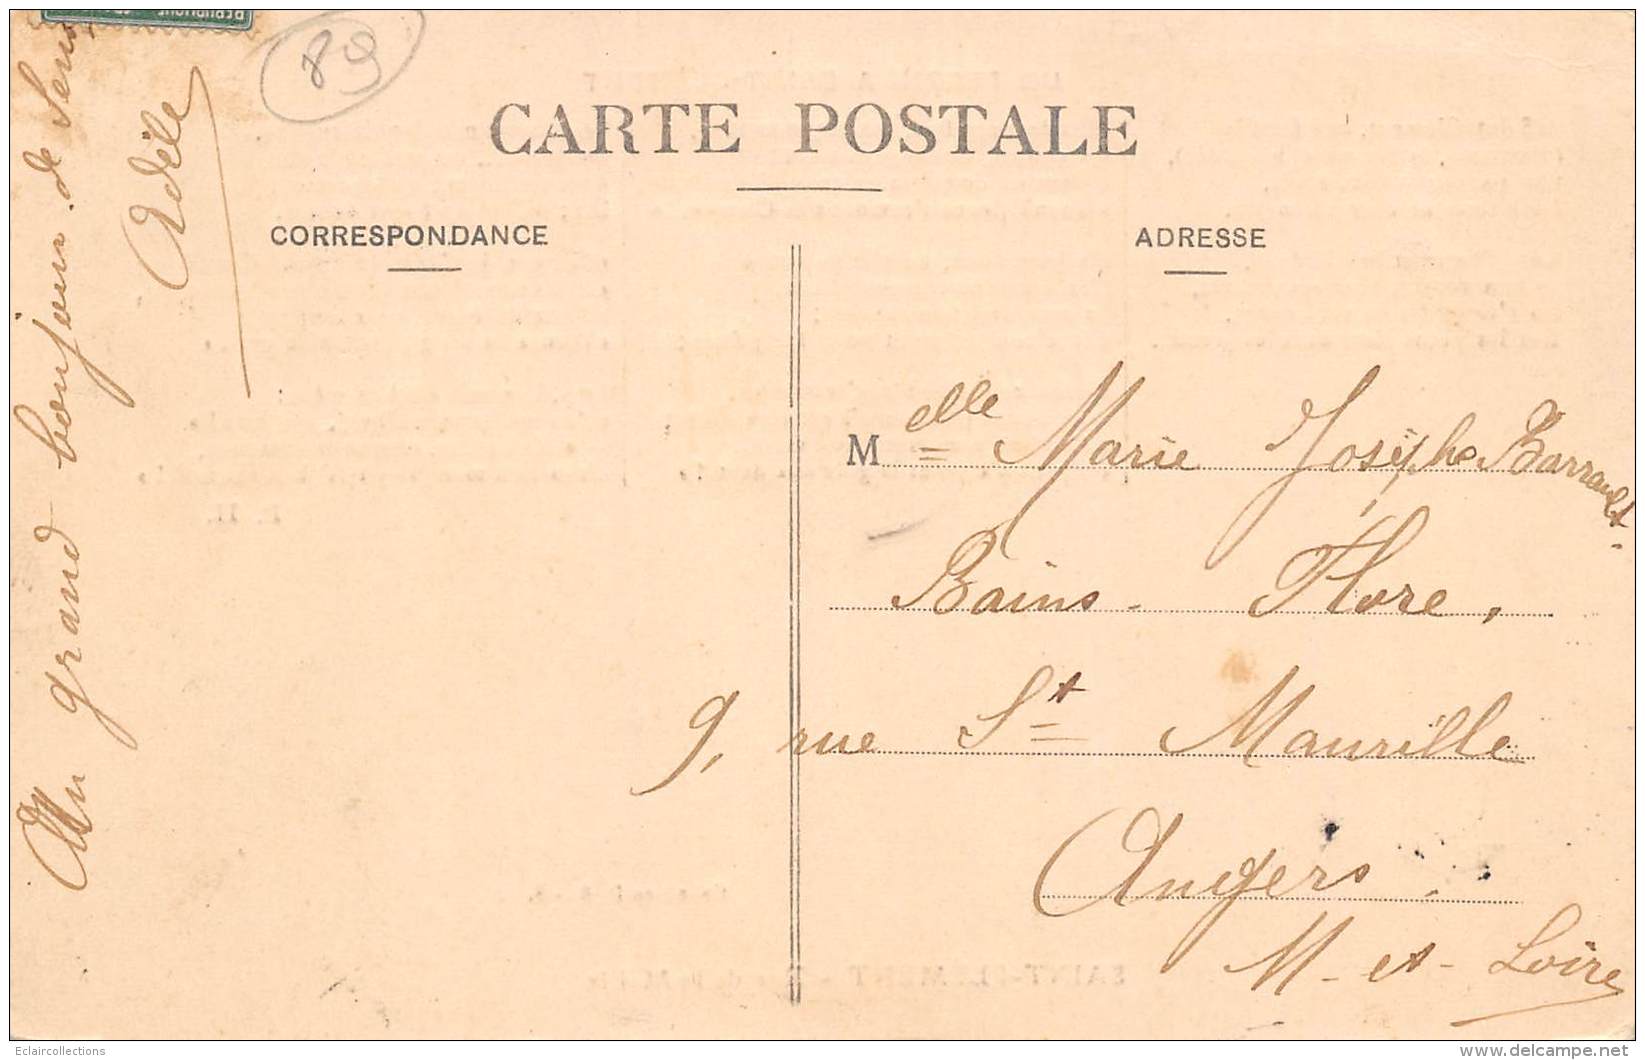 89
CARTE POSTALE
CORRESPONDANCE
ADRESSE
Un grand bonjour de Sens,
Adèle
Melle Marie Josèphe Barrault.
Bains - Flore,
9, rue St Maurille
Angers.
M - et - Loire
Eclaircollections
delcampe.net